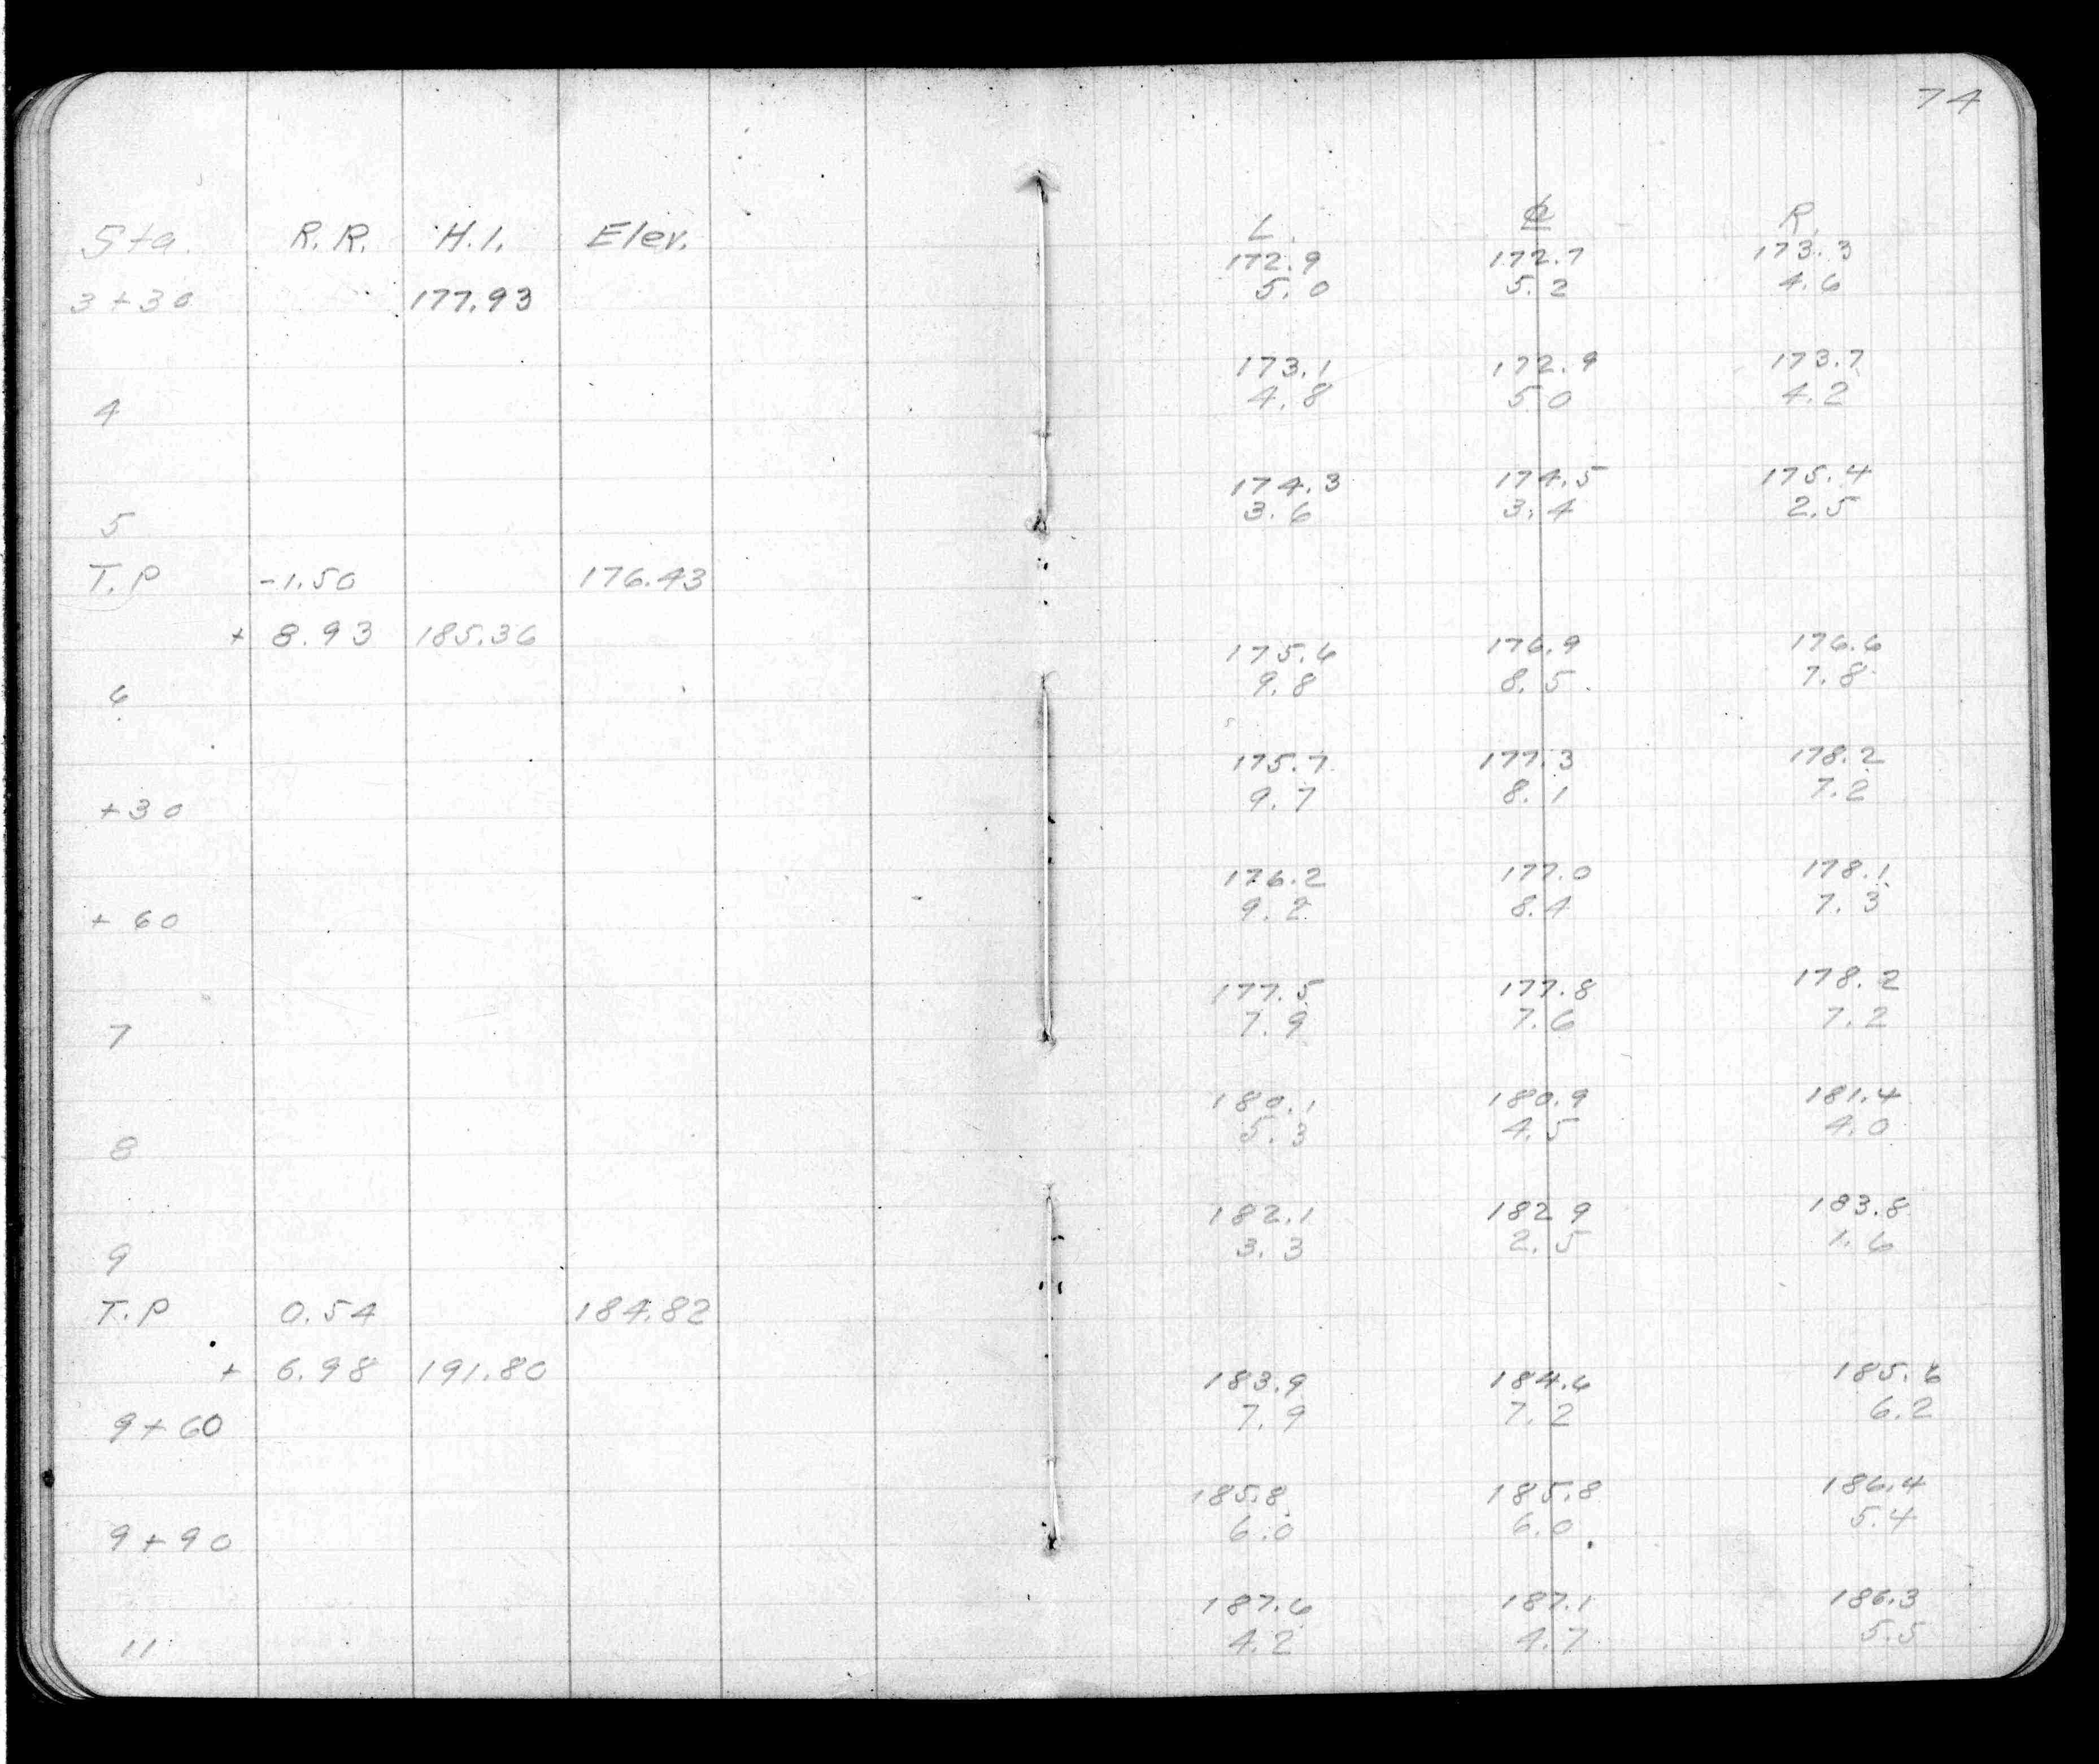 74
Sta. R.R. H.I. Elev.
3+30 177.93
4
5
T.P -1.50 176.43
+ 8.93 185.36
6
+30
+60
7
8
9
T.P 0.54 184.82
+ 6.98 191.80
9+60
9+90
11
L. ℄ R.
172.9 172.7 173.3
5.0 5.2 4.6
173.1 172.9 173.7
4.8 5.0 4.2
174.3 174.5 175.4
3.6 3.4 2.5
175.6 176.9 176.6
9.8 8.5 7.8
175.7 177.3 178.2
9.7 8.1 7.2
176.2 177.0 178.1
9.2 8.4 7.3
177.5 177.8 178.2
7.9 7.6 7.2
180.1 180.9 181.4
5.3 4.5 4.0
182.1 182 9 183.8
3.3 2.5 1.6
183.9 184.6 185.6
7.9 7.2 6.2
185.8 185.8 186.4
6.0 6.0 5.4
187.6 187.1 186.3
4.2 4.7 5.5